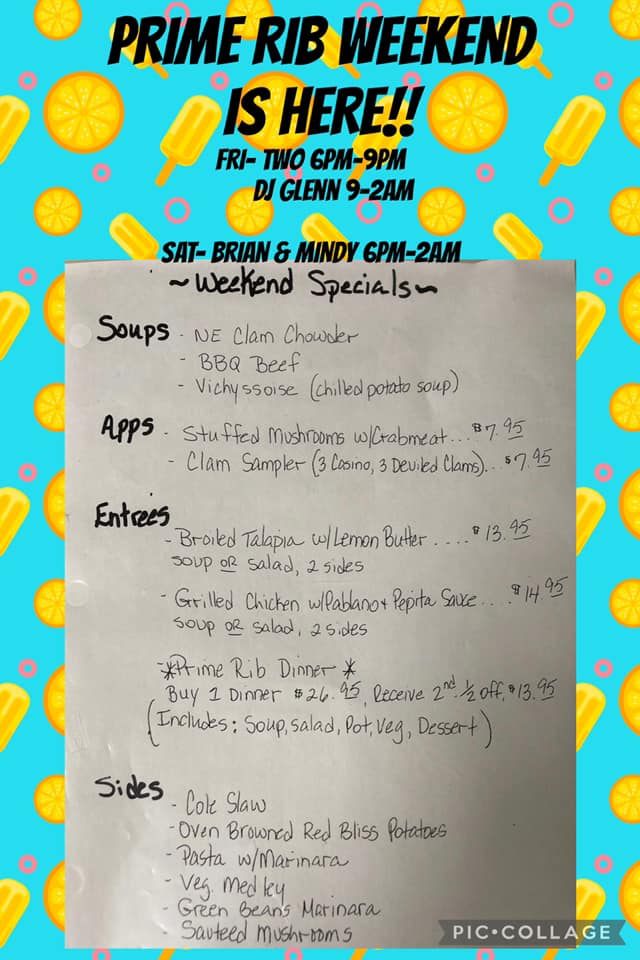 PRIME RIB WEEKEND
IS HERE!!
FRI- TWO 6PM-9PM
DJ GLENN 9-2AM
SAT- BRIAN & MINDY 6PM-2AM
~Weekend Specials~
Soups - NE Clam Chowder
- BBQ Beef
- Vichyssoise (chilled potato soup)
Apps - Stuffed Mushrooms w/Crabmeat... $7.95
- Clam Sampler (3 Casino, 3 Deviled Clams)... $7.95
Entrees
- Broiled Talapia w/Lemon Butter .... $13.95
soup OR salad, 2 sides
- Grilled Chicken w/Pablano + Pepita Sauce.... $14.95
soup OR salad, 2 sides
-*Prime Rib Dinner*
Buy 1 Dinner $26.95, Receive 2nd ½ off, $13.95
(Includes: Soup, salad, Pot, Veg, Dessert)
Sides
- Cole Slaw
- Oven Browned Red Bliss Potatoes
- Pasta w/Marinara
- Veg. Medley
- Green Beans Marinara
- Sauteed Mushrooms
PIC•COLLAGE